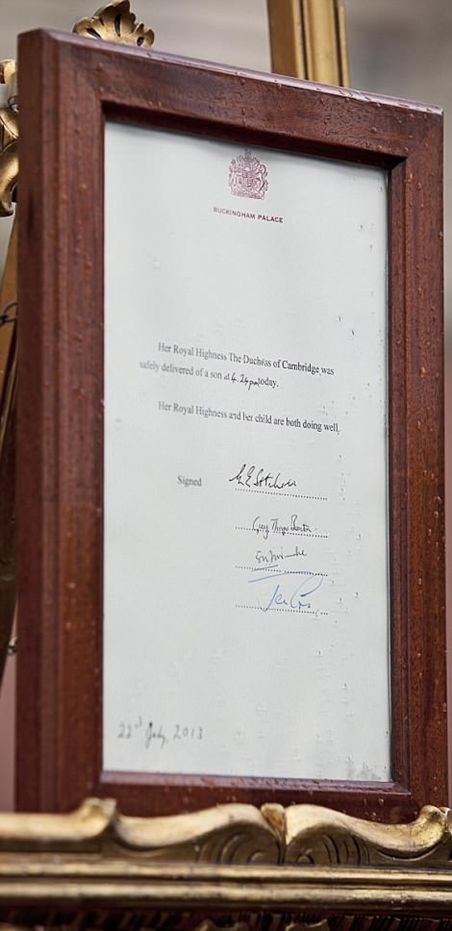 BUCKINGHAM PALACE
Her Royal Highness The Duchess of Cambridge was
safely delivered of a son at 4.24pm today.
Her Royal Highness and her child are both doing well.
Signed
22nd July 2013